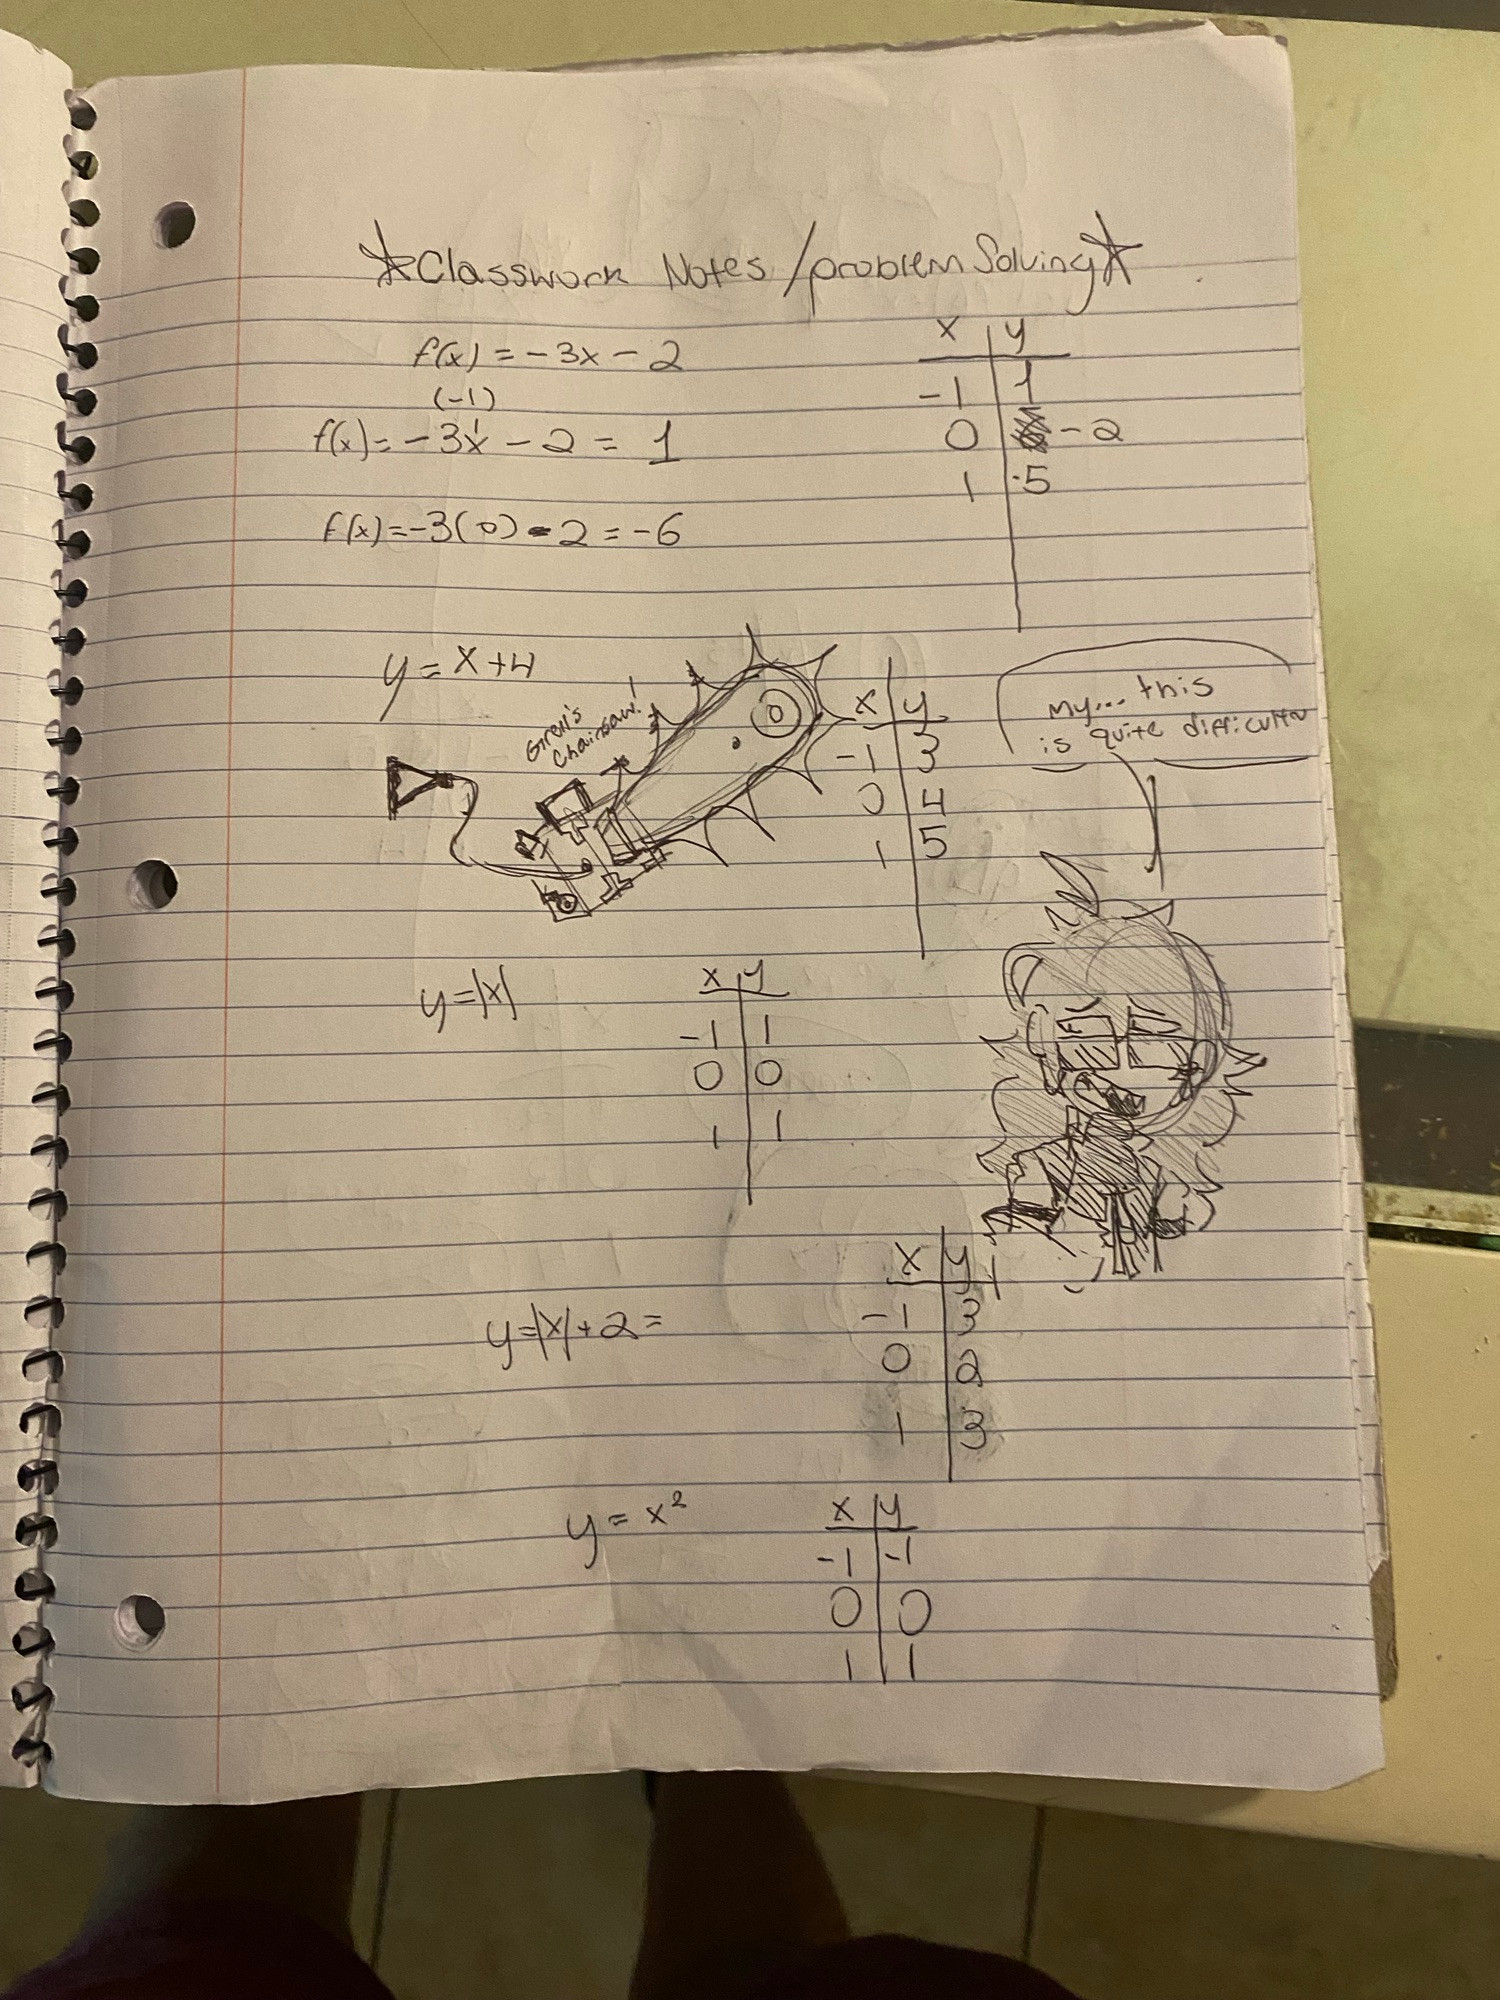 ☆Classwork Notes/problem Solving☆
f(x) = -3x - 2
(-1)
f(x) = -3x - 2 = 1
f(x) = -3(0) - 2 = -6
x | y
-1 | 1
0 | -2
1 | -5
y = x+4
Grell's
Chainsaw!
x | y
-1 | 3
0 | 4
1 | 5
My... this
is quite difficult
y = |x|
x | y
-1 | 1
0 | 0
1 | 1
y = |x| + 2 =
x | y
-1 | 3
0 | 2
1 | 3
y = x²
x | y
-1 | -1
0 | 0
1 | 1